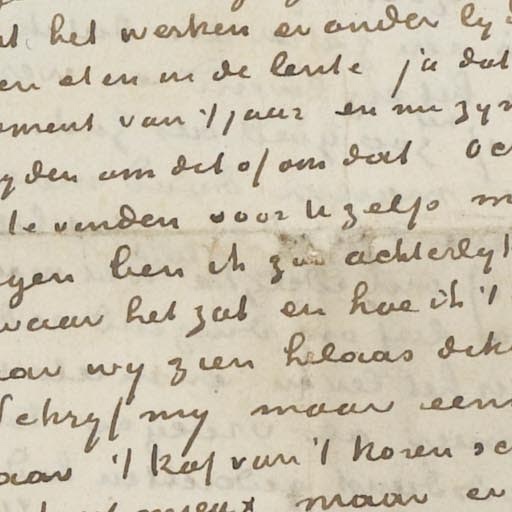 het werken er onder ly
en eten in de lente ja dat
oment van 't jaar en nu zyn
yden om dit of om dat oc
te vinden voor U zelf m
gen ben ik zoo achterly
waar het zat en hoe ik 't
aar wy zien helaas dik
Schryf my maar eens
aar 't kaf van 't koren sc
maar er